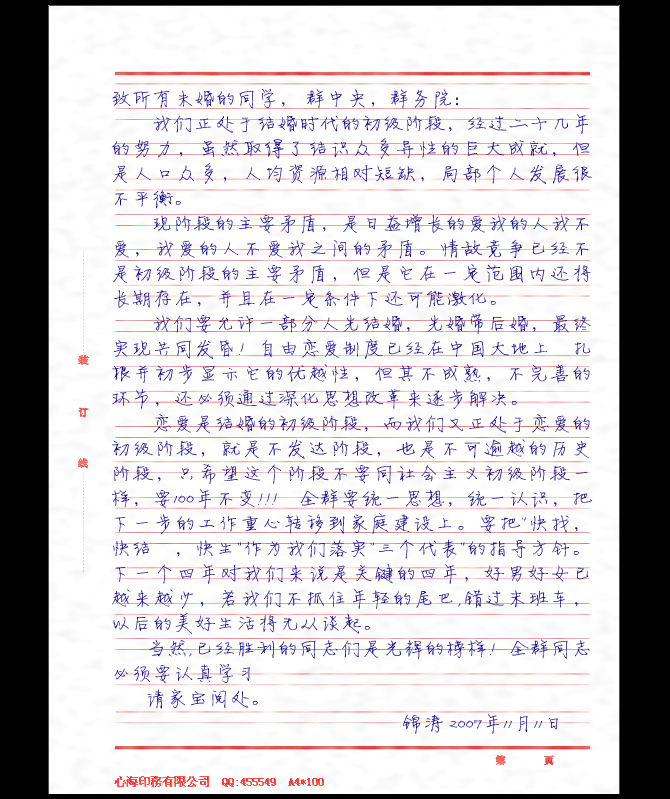 致所有未婚的同学，群中央，群务院：
我们正处于结婚时代的初级阶段，经过二十几年
的努力，虽然取得了结识众多异性的巨大成就，但
是人口众多，人均资源相对短缺，局部个人发展很
不平衡。
现阶段的主要矛盾，是日益增长的爱我的人我不
爱，我爱的人不爱我之间的矛盾。情敌竞争已经不
是初级阶段的主要矛盾，但是它在一定范围内还将
长期存在，并且在一定条件下还可能激化。
我们要允许一部分人先结婚，先婚带后婚，最终
实现共同发昏！自由恋爱制度已经在中国大地上 扎
根并初步显示它的优越性，但其不成熟，不完善的
环节，还必须通过深化思想改革来逐步解决。
恋爱是结婚的初级阶段，而我们又正处于恋爱的
初级阶段，就是不发达阶段，也是不可逾越的历史
阶段，只希望这个阶段不要同社会主义初级阶段一
样，要100年不变!!! 全群要统一思想，统一认识，把
下一步的工作重心转移到家庭建设上。要把"快找，
快结 ，快生"作为我们落实"三个代表"的指导方针。
下一个四年对我们来说是关键的四年，好男好女已
越来越少，若我们不抓住年轻的尾巴,错过末班车，
以后的美好生活将无从谈起。
当然,已经胜利的同志们是光辉的榜样！全群同志
必须要认真学习
请家宝阅处。
锦涛 2007年11月11日
装
订
线
第 页
心海印務有限公司 QQ:455549 A4*100